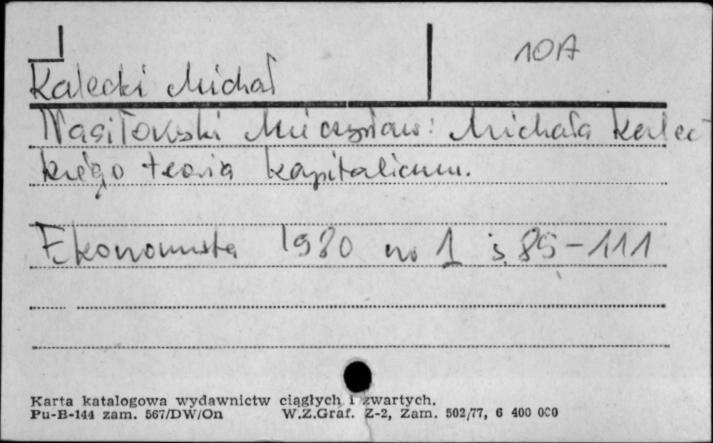 10A
Kalecki Michał
Nasiłowski Mieczysław: Michała Kalec
kiego teoria kapitalizmu.
Ekonomista 1980 no 1 s. 85-111
Karta katalogowa wydawnictw ciągłych i zwartych.
Pu-B-144 zam. 567/DW/On W.Z.Graf. Z-2, Zam. 502/77, 6 400 000